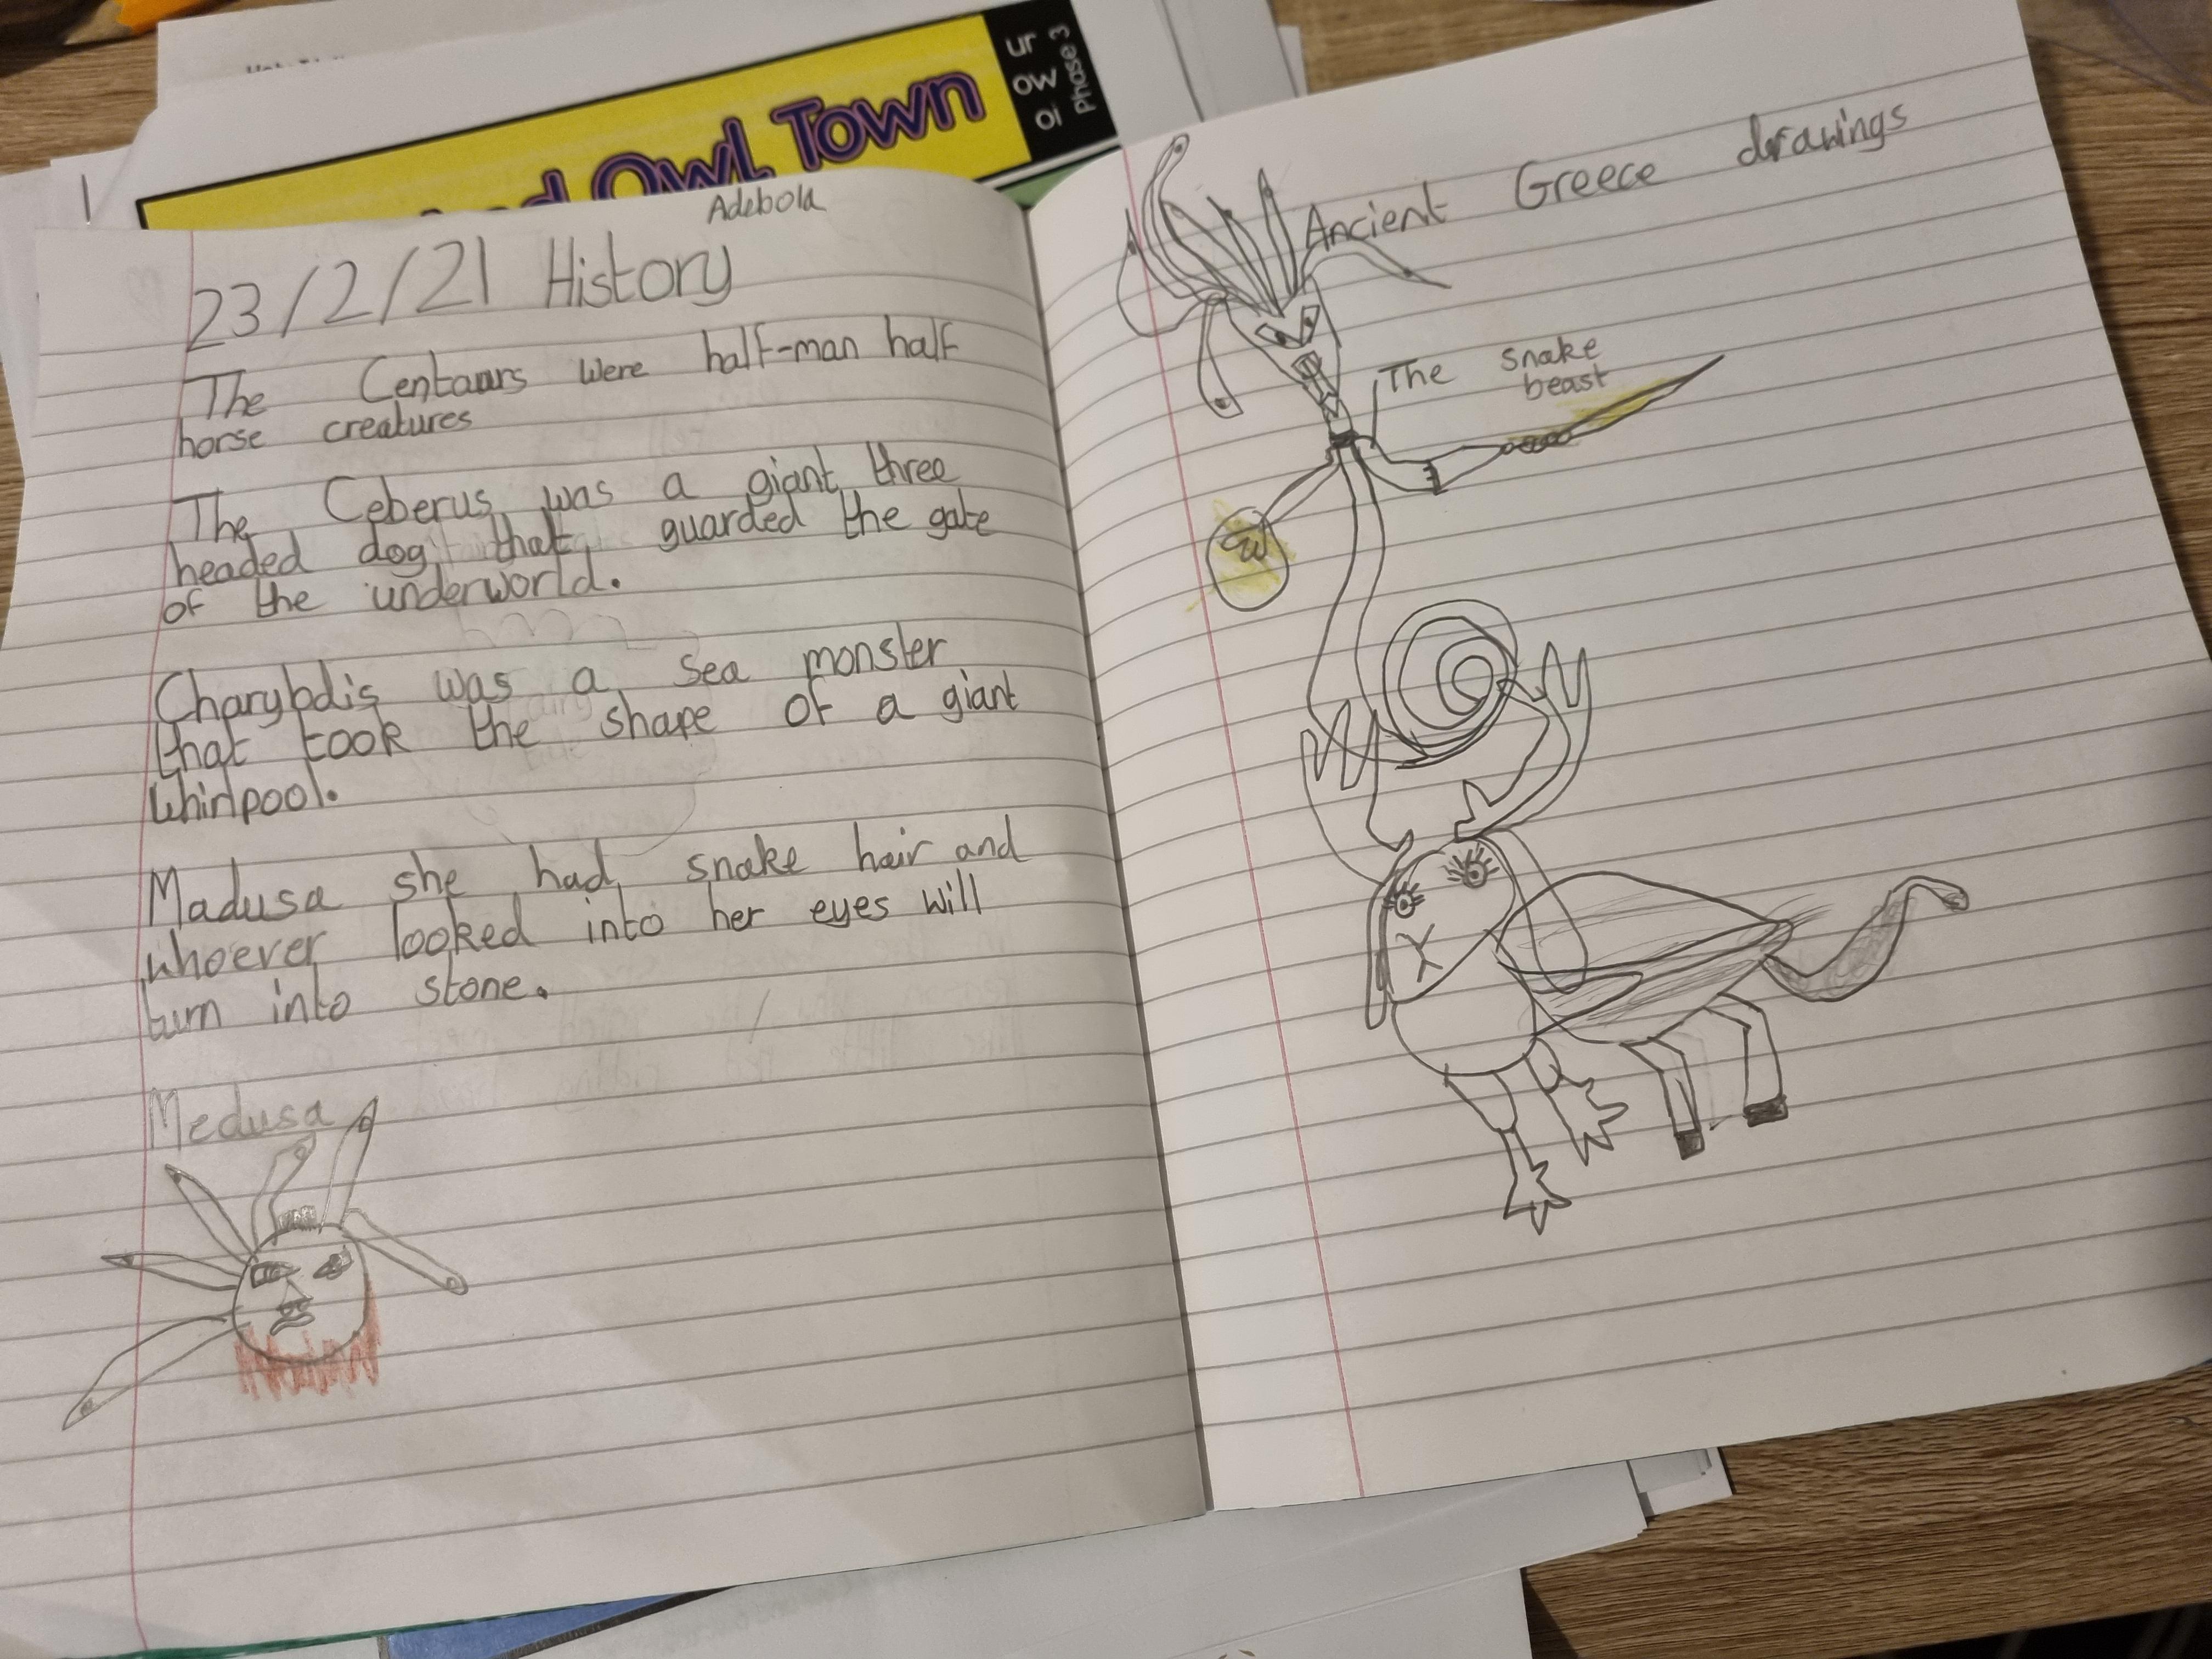 Owl Town
ur
ow
oi
Phase 3
Adebola
23/2/21 History
The Centaurs were half-man half
horse creatures
The Ceberus was a giant three
headed dog that guarded the gate
of the underworld.
Charybdis was a sea monster
that took the shape of a giant
whirlpool.
Madusa she had snake hair and
whoever looked into her eyes will
turn into stone.
Medusa
Ancient Greece drawings
The snake
beast